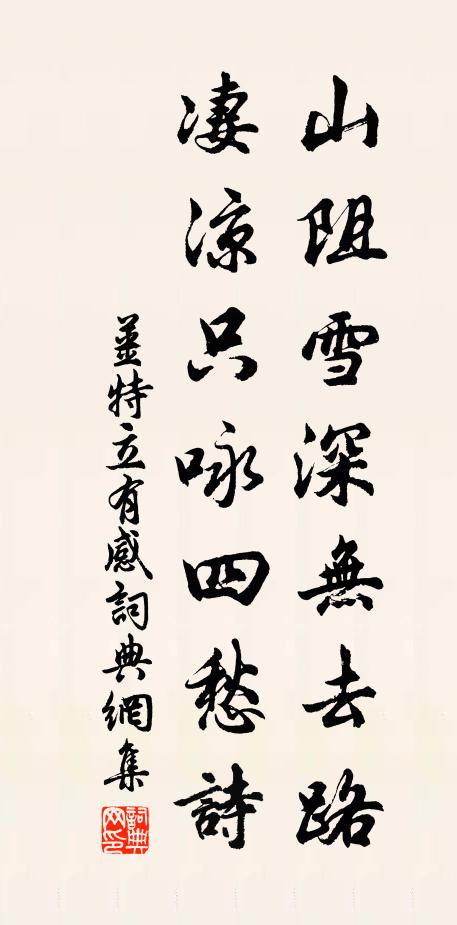 山阻雪深無去路
凄涼只咏四愁詩
姜特立有感詞典網集
詞典
网印